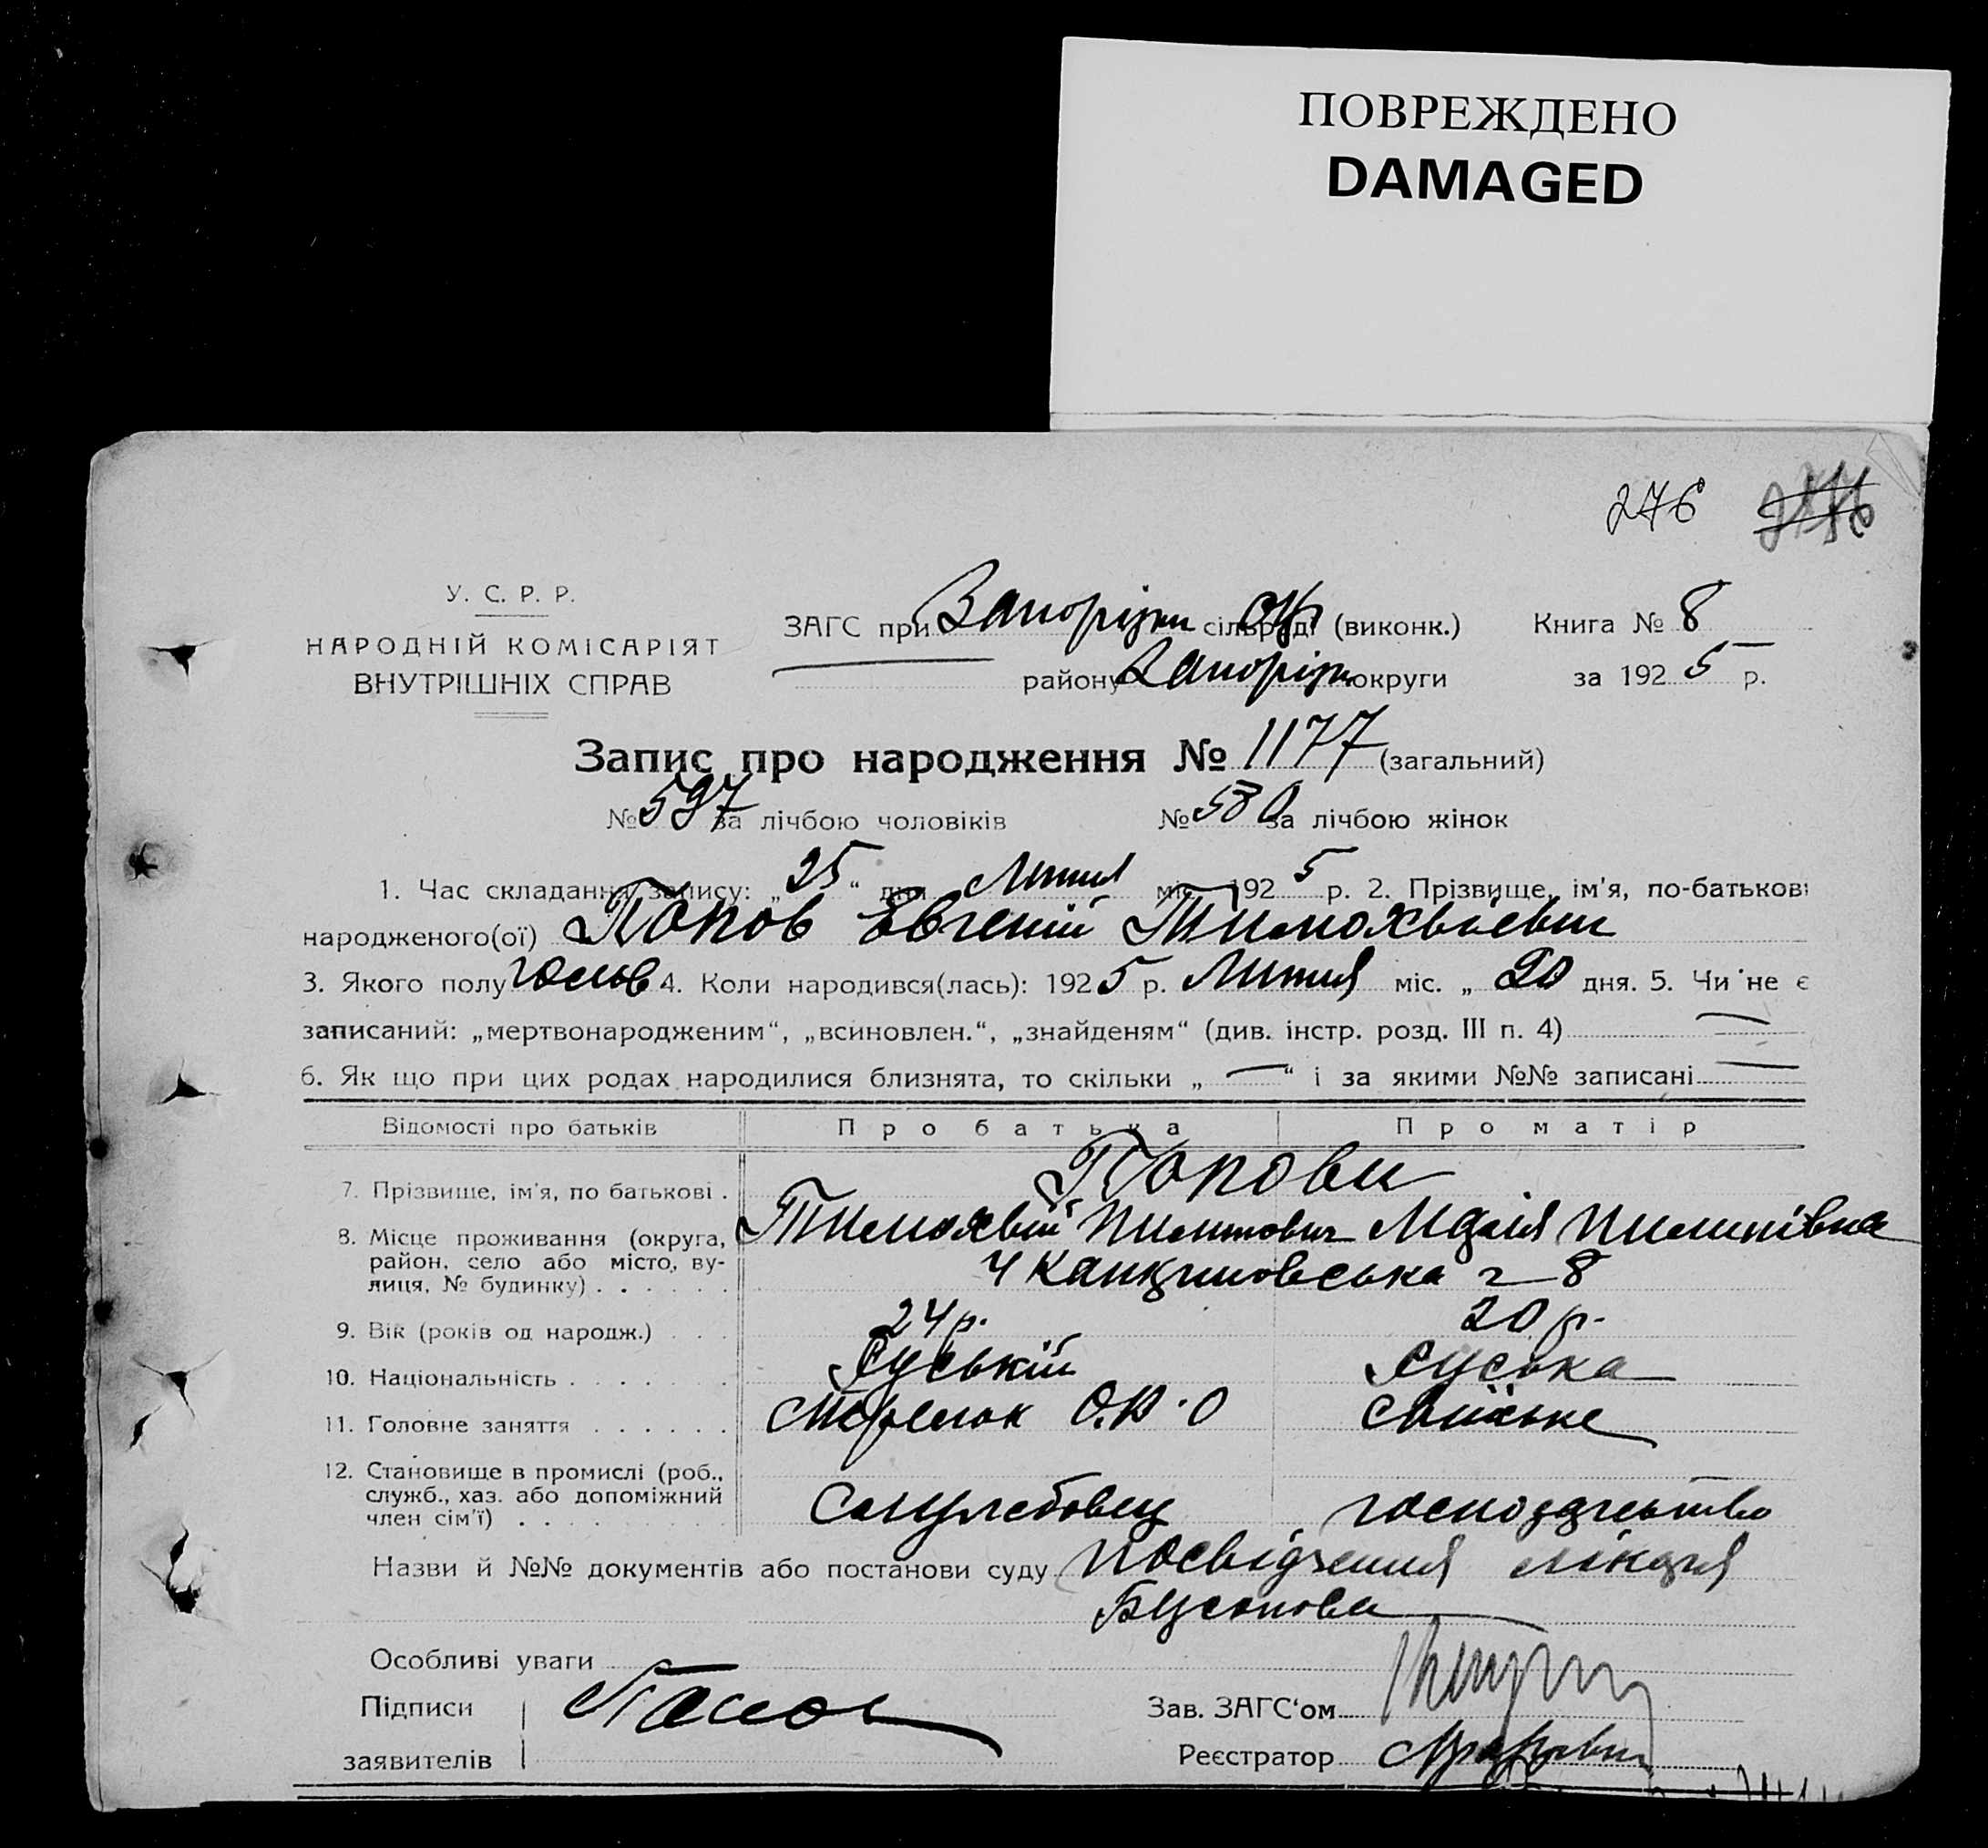 ПОВРЕЖДЕНО
DAMAGED
276
У. С. Р. Р.
НАРОДНІЙ КОМІСАРІЯТ
ВНУТРІШНІХ СПРАВ
ЗАГС при Запоріжи сільраді (виконк.)
району Запоріжи округи
Книга № 8
за 1925 р.
Запис про народження № 1177 (загальний)
№ 597 за лічбою чоловіків № 580 за лічбою жінок
1. Час складання запису: „25“ дня Липня міс. 1925 р. 2. Прізвище, ім'я, по-батькові
народженого(ої) Попов Евгеній Тимохвієвич
3. Якого полу чолов 4. Коли народився(лась): 1925 р. Липня міс. „ 20 дня. 5. Чи не є
записаний: „мертвонародженим“, „всиновлен.“, „знайденям“ (див. інстр. розд. III п. 4) —
6. Як що при цих родах народилися близнята, то скільки „ — “ і за якими №№ записані —
Відомості про батьків Про батька Про матір
7. Прізвище, ім'я, по батькові . Попови
Тимохвій Пилипович Марія Пилипівна
8. Місце проживання (округа,
район, село або місто, ву-
лиця, № будинку) . . . . . . 8
9. Вік (років од народж.) . . . 24 р. 20 р.
10. Національність . . . . . Руський Руська
11. Головне заняття . . . . . . Стрелок О.В.О Сільське
12. Становище в промислі (роб.,
служб., хаз. або допоміжний
член сім'ї) . . . . . . господарьство
Назви й №№ документів або постанови суду Посвідчення лікаря
Бусонова
Особливі уваги
Підписи
заявителів
Зав. ЗАГС'ом
Реєстратор